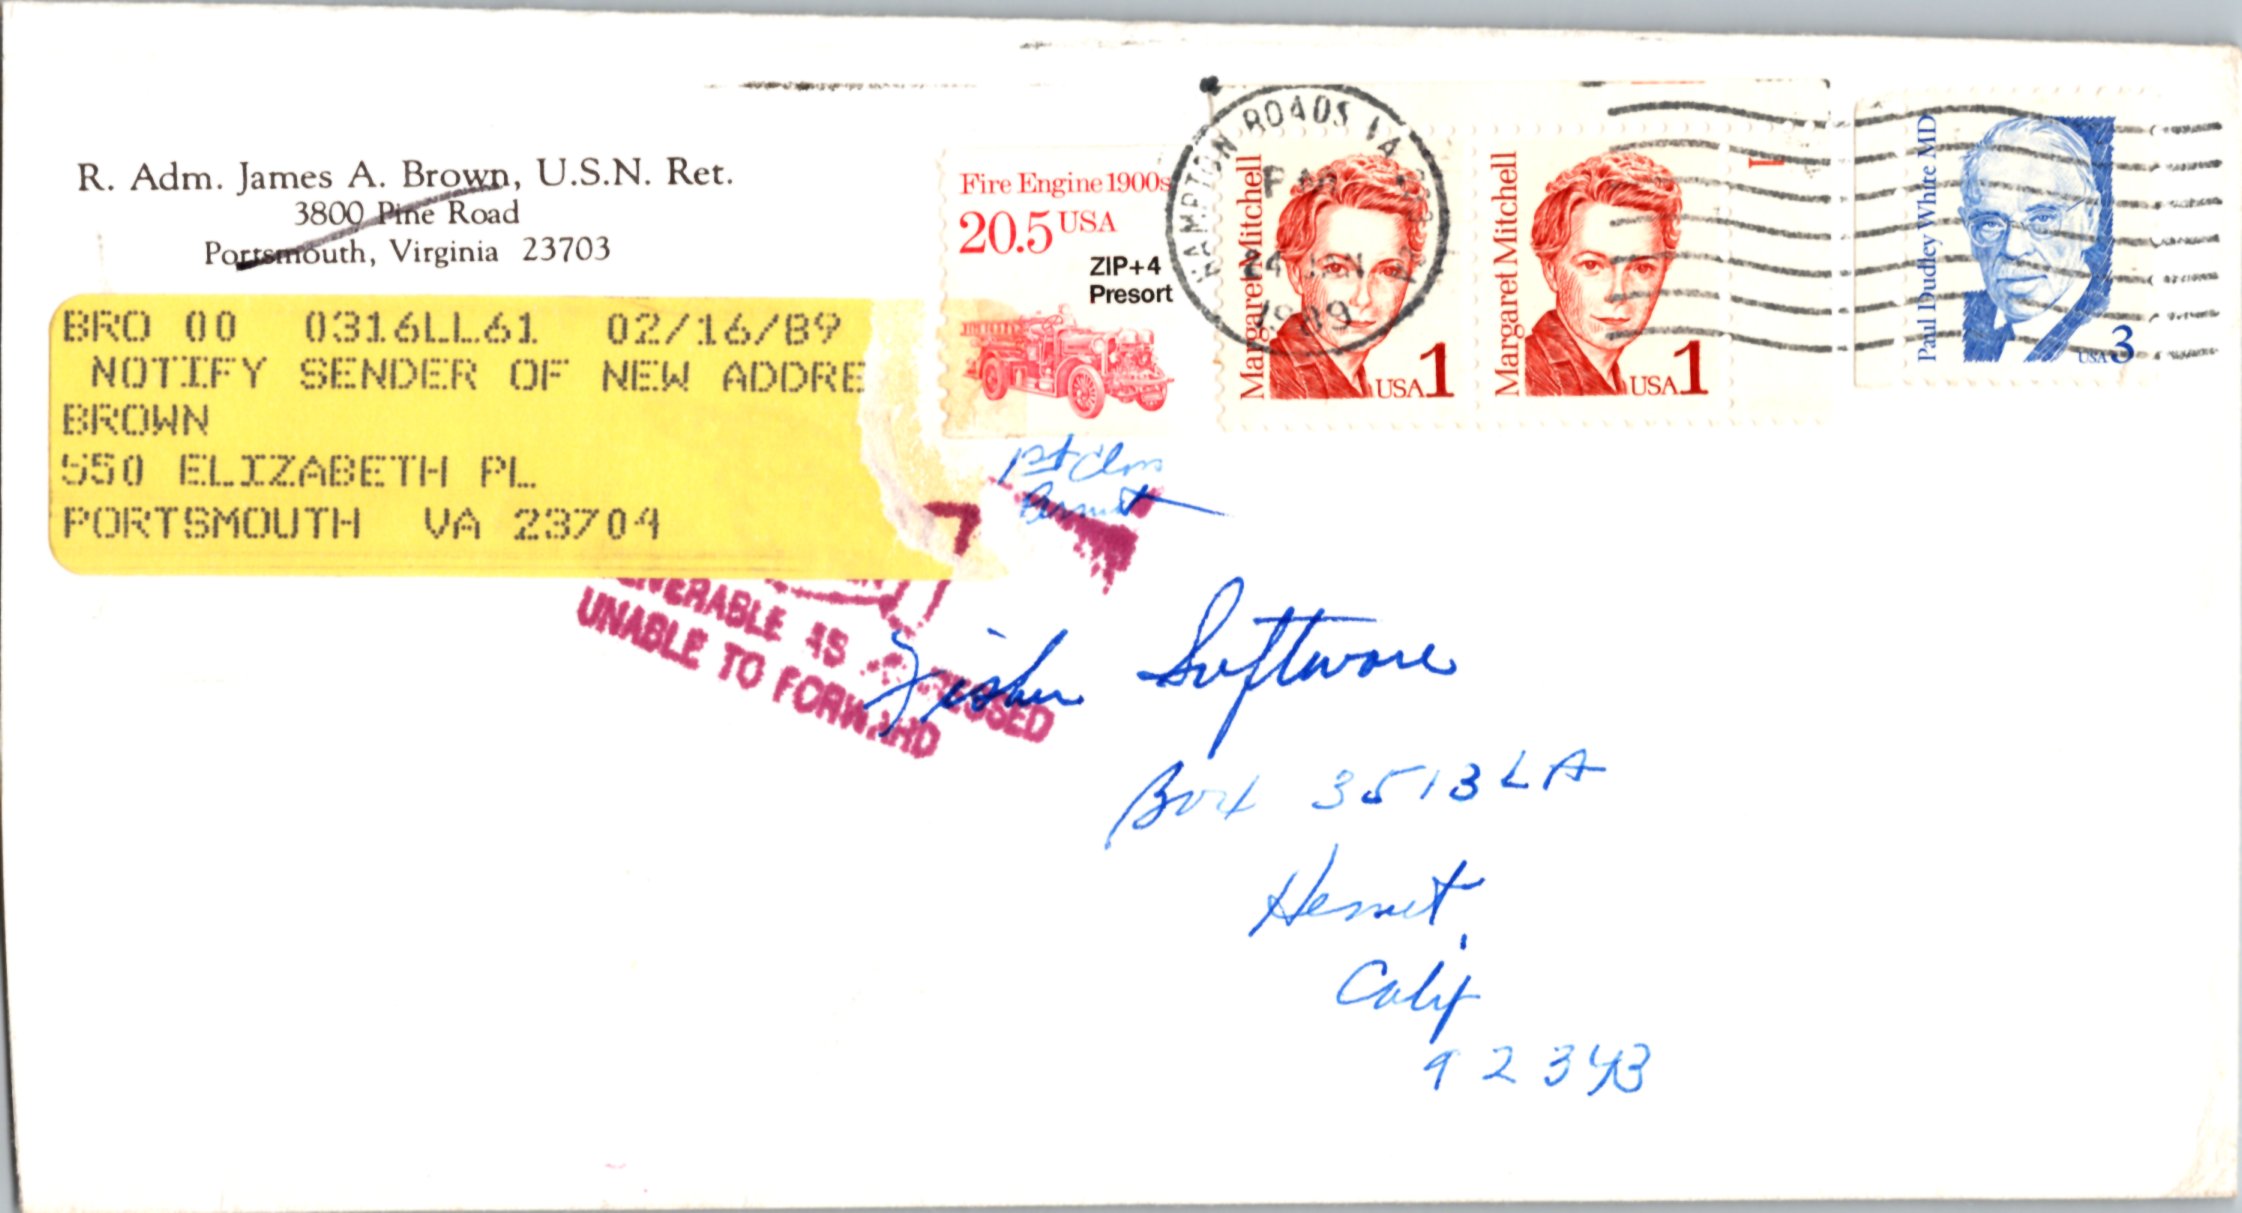 R. Adm. James A. Brown, U.S.N. Ret.
3800 Pine Road
Portsmouth, Virginia 23703
BRO 00 0316LL61 02/16/89
NOTIFY SENDER OF NEW ADDRE
BROWN
550 ELIZABETH PL
PORTSMOUTH VA 23704
Fire Engine 1900s
20.5 USA
ZIP+4
Presort
HAMPTON ROADS VA
24 JAN
1989
Margaret Mitchell
USA 1
Margaret Mitchell
USA 1
Paul Dudley White MD
USA 3
1st Class
Permit
UNABLE TO FORWARD
Fisher Software
Box 3513 LA
Hemet,
Calif
92343